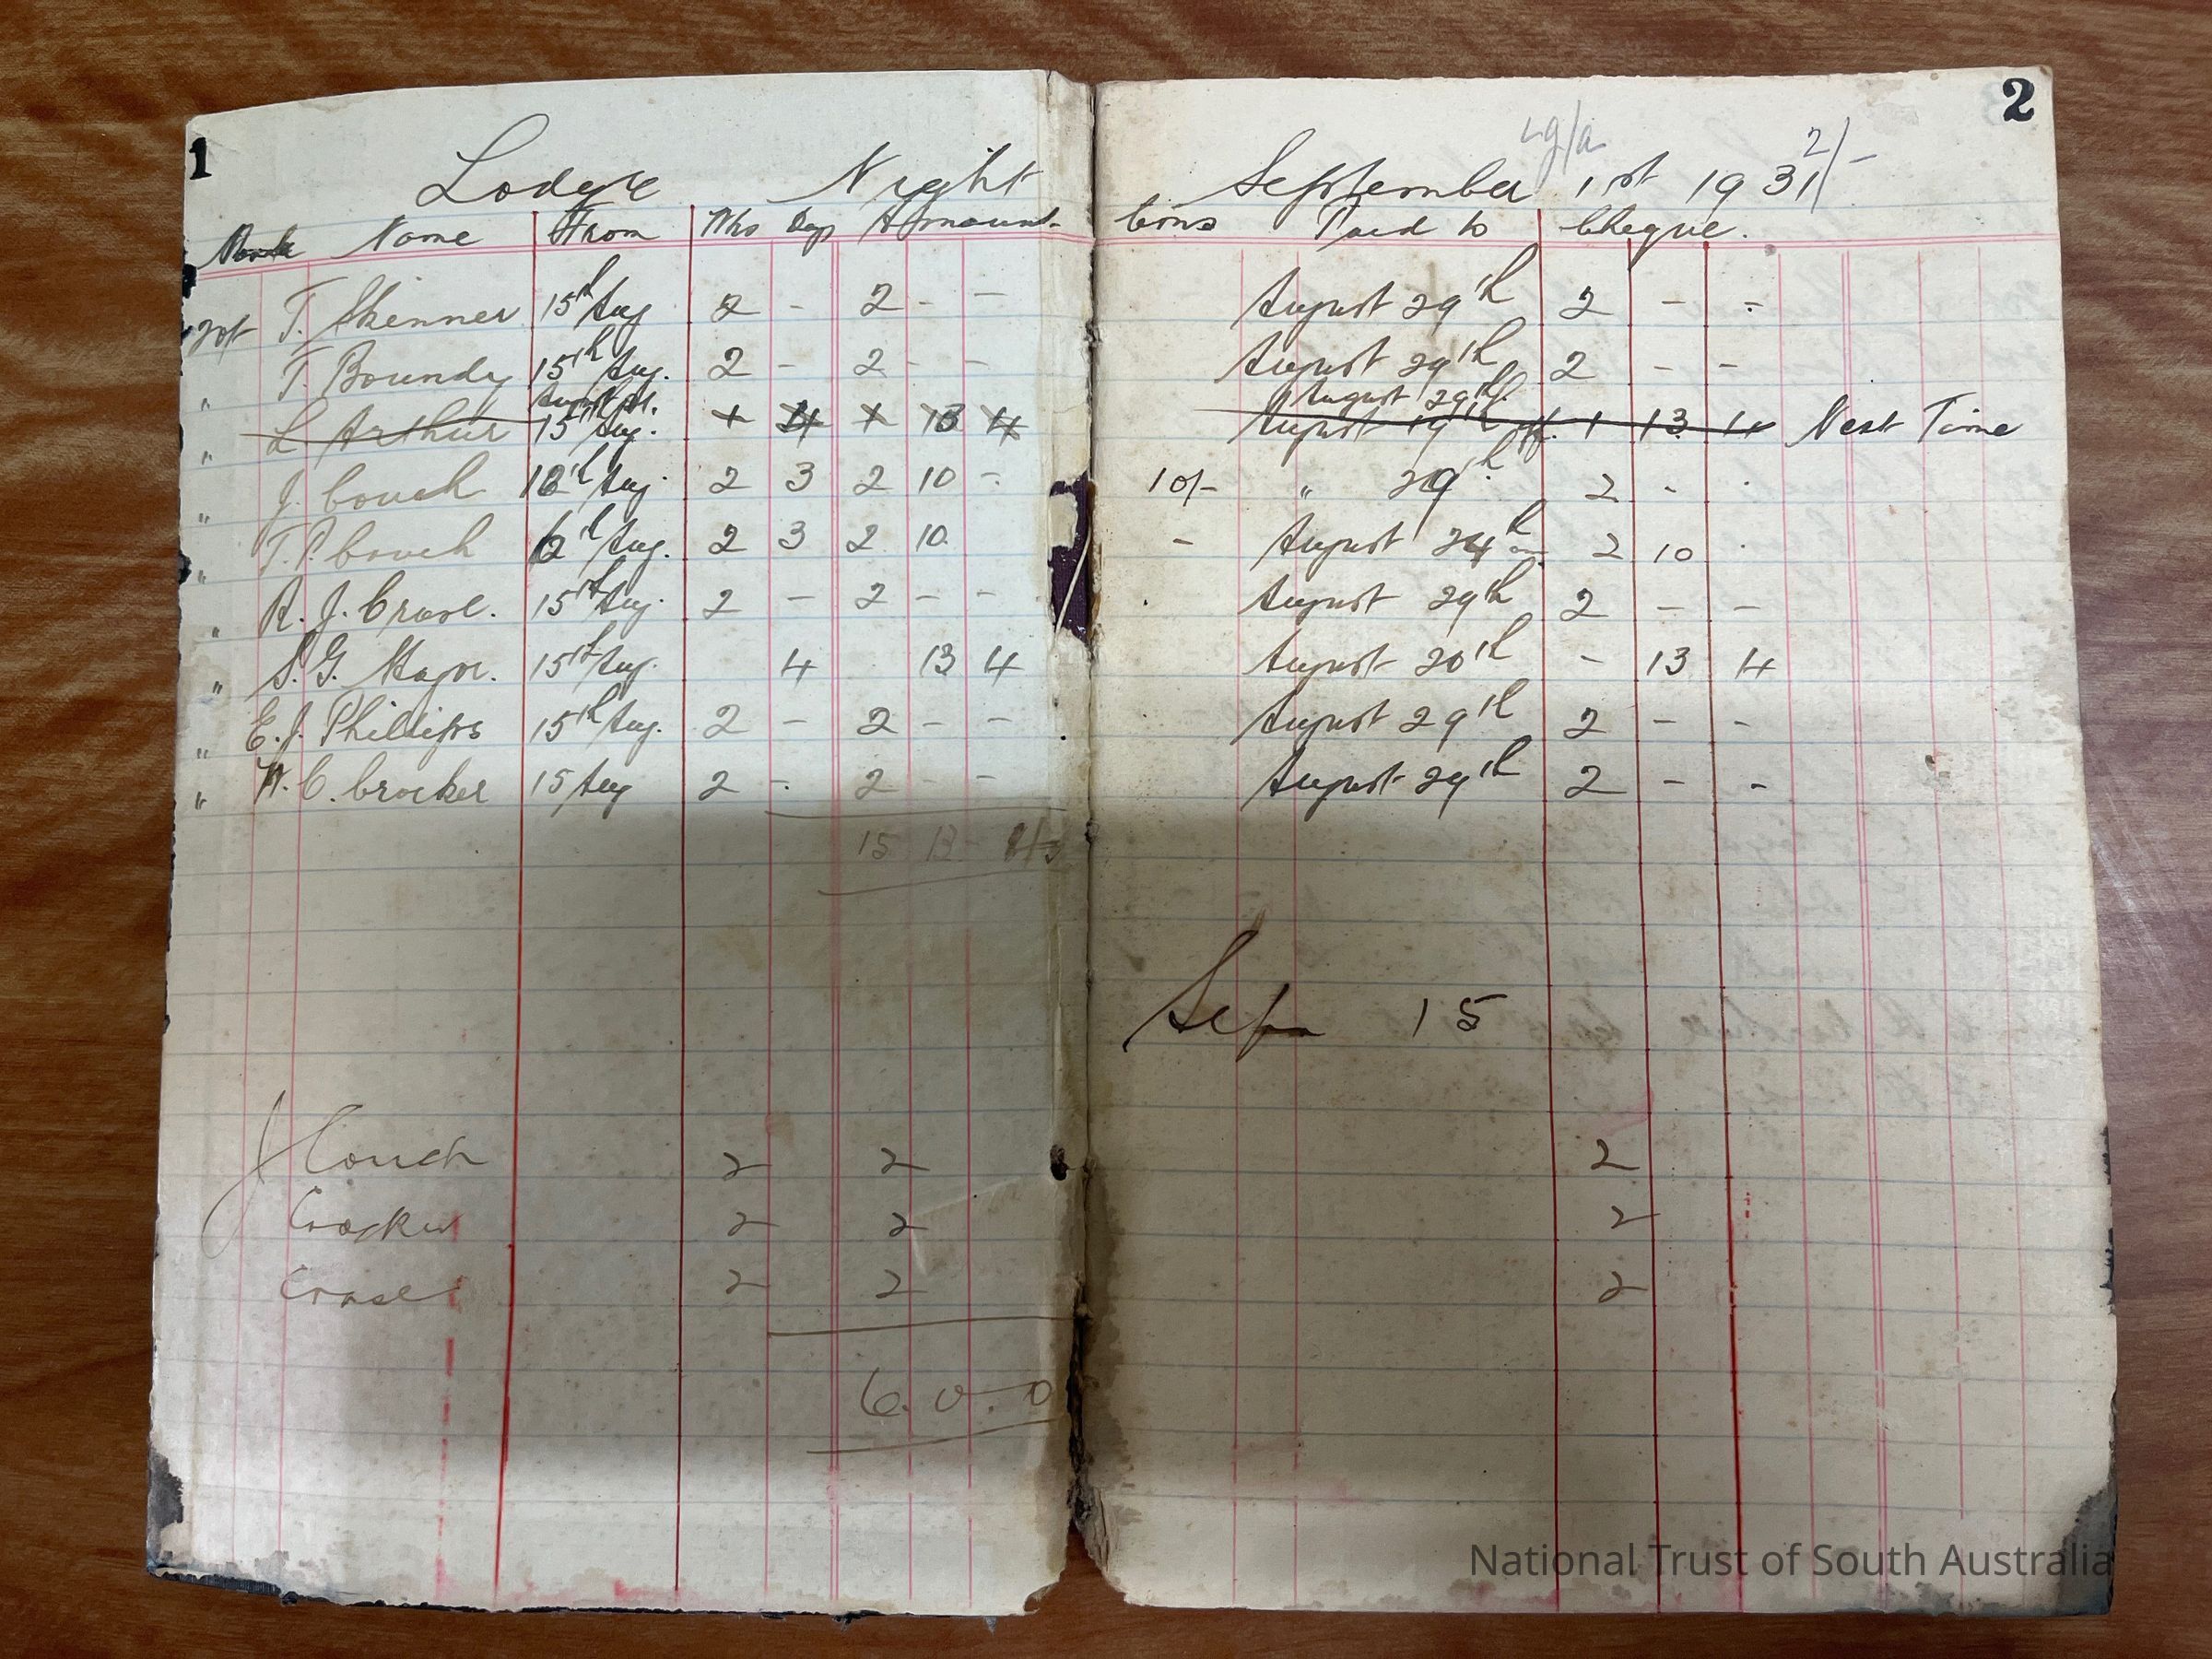 1 2
Lodge Night September 1st 1931 2/-
Name From Wks Days Amount Cons Paid to Cheque.
20/- T. Skinner 15th Aug 2 - 2 - - August 29th 2 - -
" T. Boundy 15th Aug. 2 - 2 - - August 29th 2 - -
August 29th.
" L Arthur 15th Aug. 1 4 1 13 4 August 19th 1 13 4 Next Time
" J. Couch 12th Aug. 2 3 2 10 - 10/- " 29th 2 - -
" T. P. Couch 12th Aug. 2 3 2 10 - August 29th 2 10 -
" R. J. Crase. 15th Aug. 2 - 2 - - August 29th 2 - -
" S. G. Major. 15th Aug. 4 13 4 August 20th - 13 4
" E. J. Phillips 15th Aug. 2 - 2 - - August 29th 2 - -
" W. C. Crocker 15 Aug 2 - 2 - - August 29th 2 - -
15 13 4
Sep 15
J Couch 2 2 2
Crocker 2 2 2
Crase 2 2 2
6. 0. 0
National Trust of South Australia